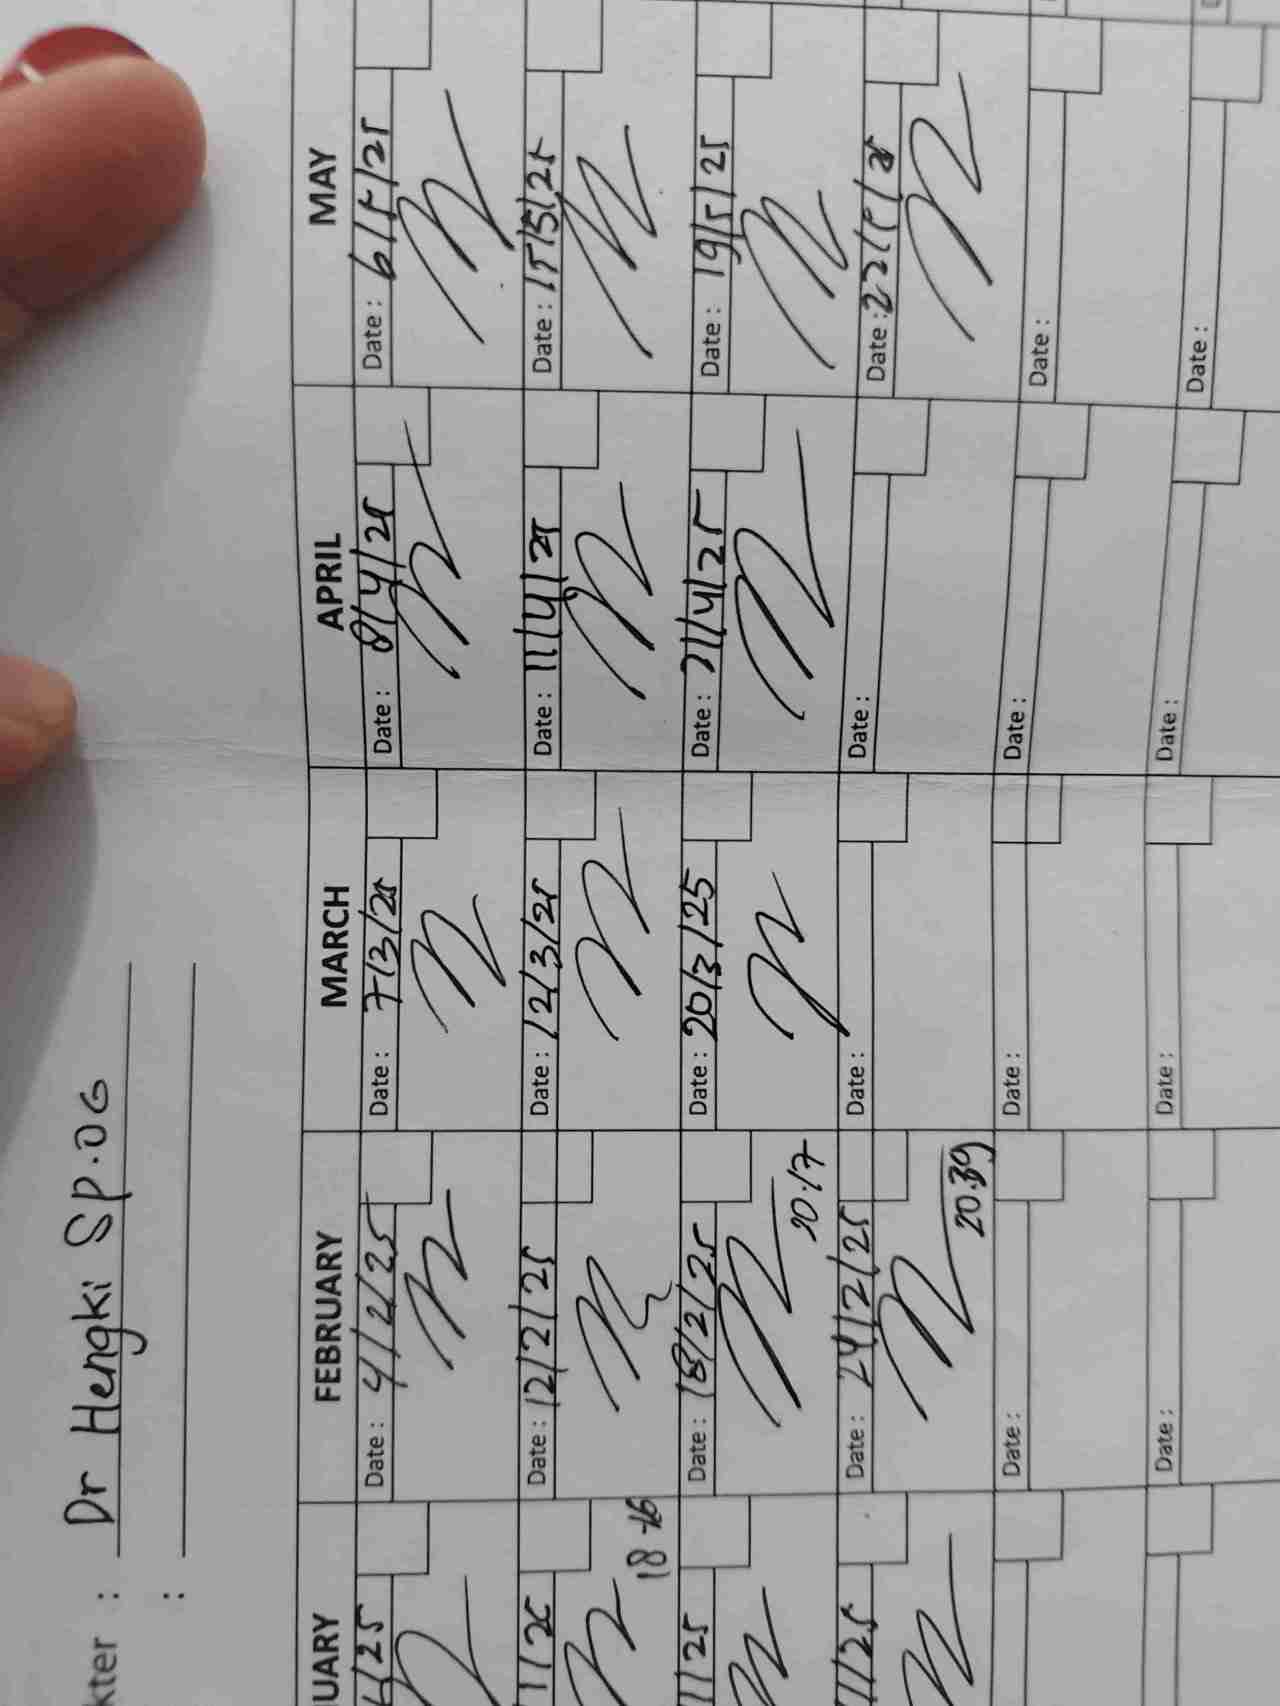 kter : Dr Hengki Sp.OG
:
UARY FEBRUARY MARCH APRIL MAY
/25 Date : 4/2/25 Date : 7/3/25 Date : 8/4/25 Date : 6/5/25
1/25 Date : 12/2/25 Date : 12/3/25 Date : 11/4/25 Date : 15/5/25
18
1/25 Date : 18/2/25 Date : 20/3/25 Date : 21/4/25 Date : 19/5/25
20.17
1/25 Date : 24/2/25 Date : Date : Date : 22/5/25
20.39
Date : Date : Date : Date :
Date : Date : Date : Date :